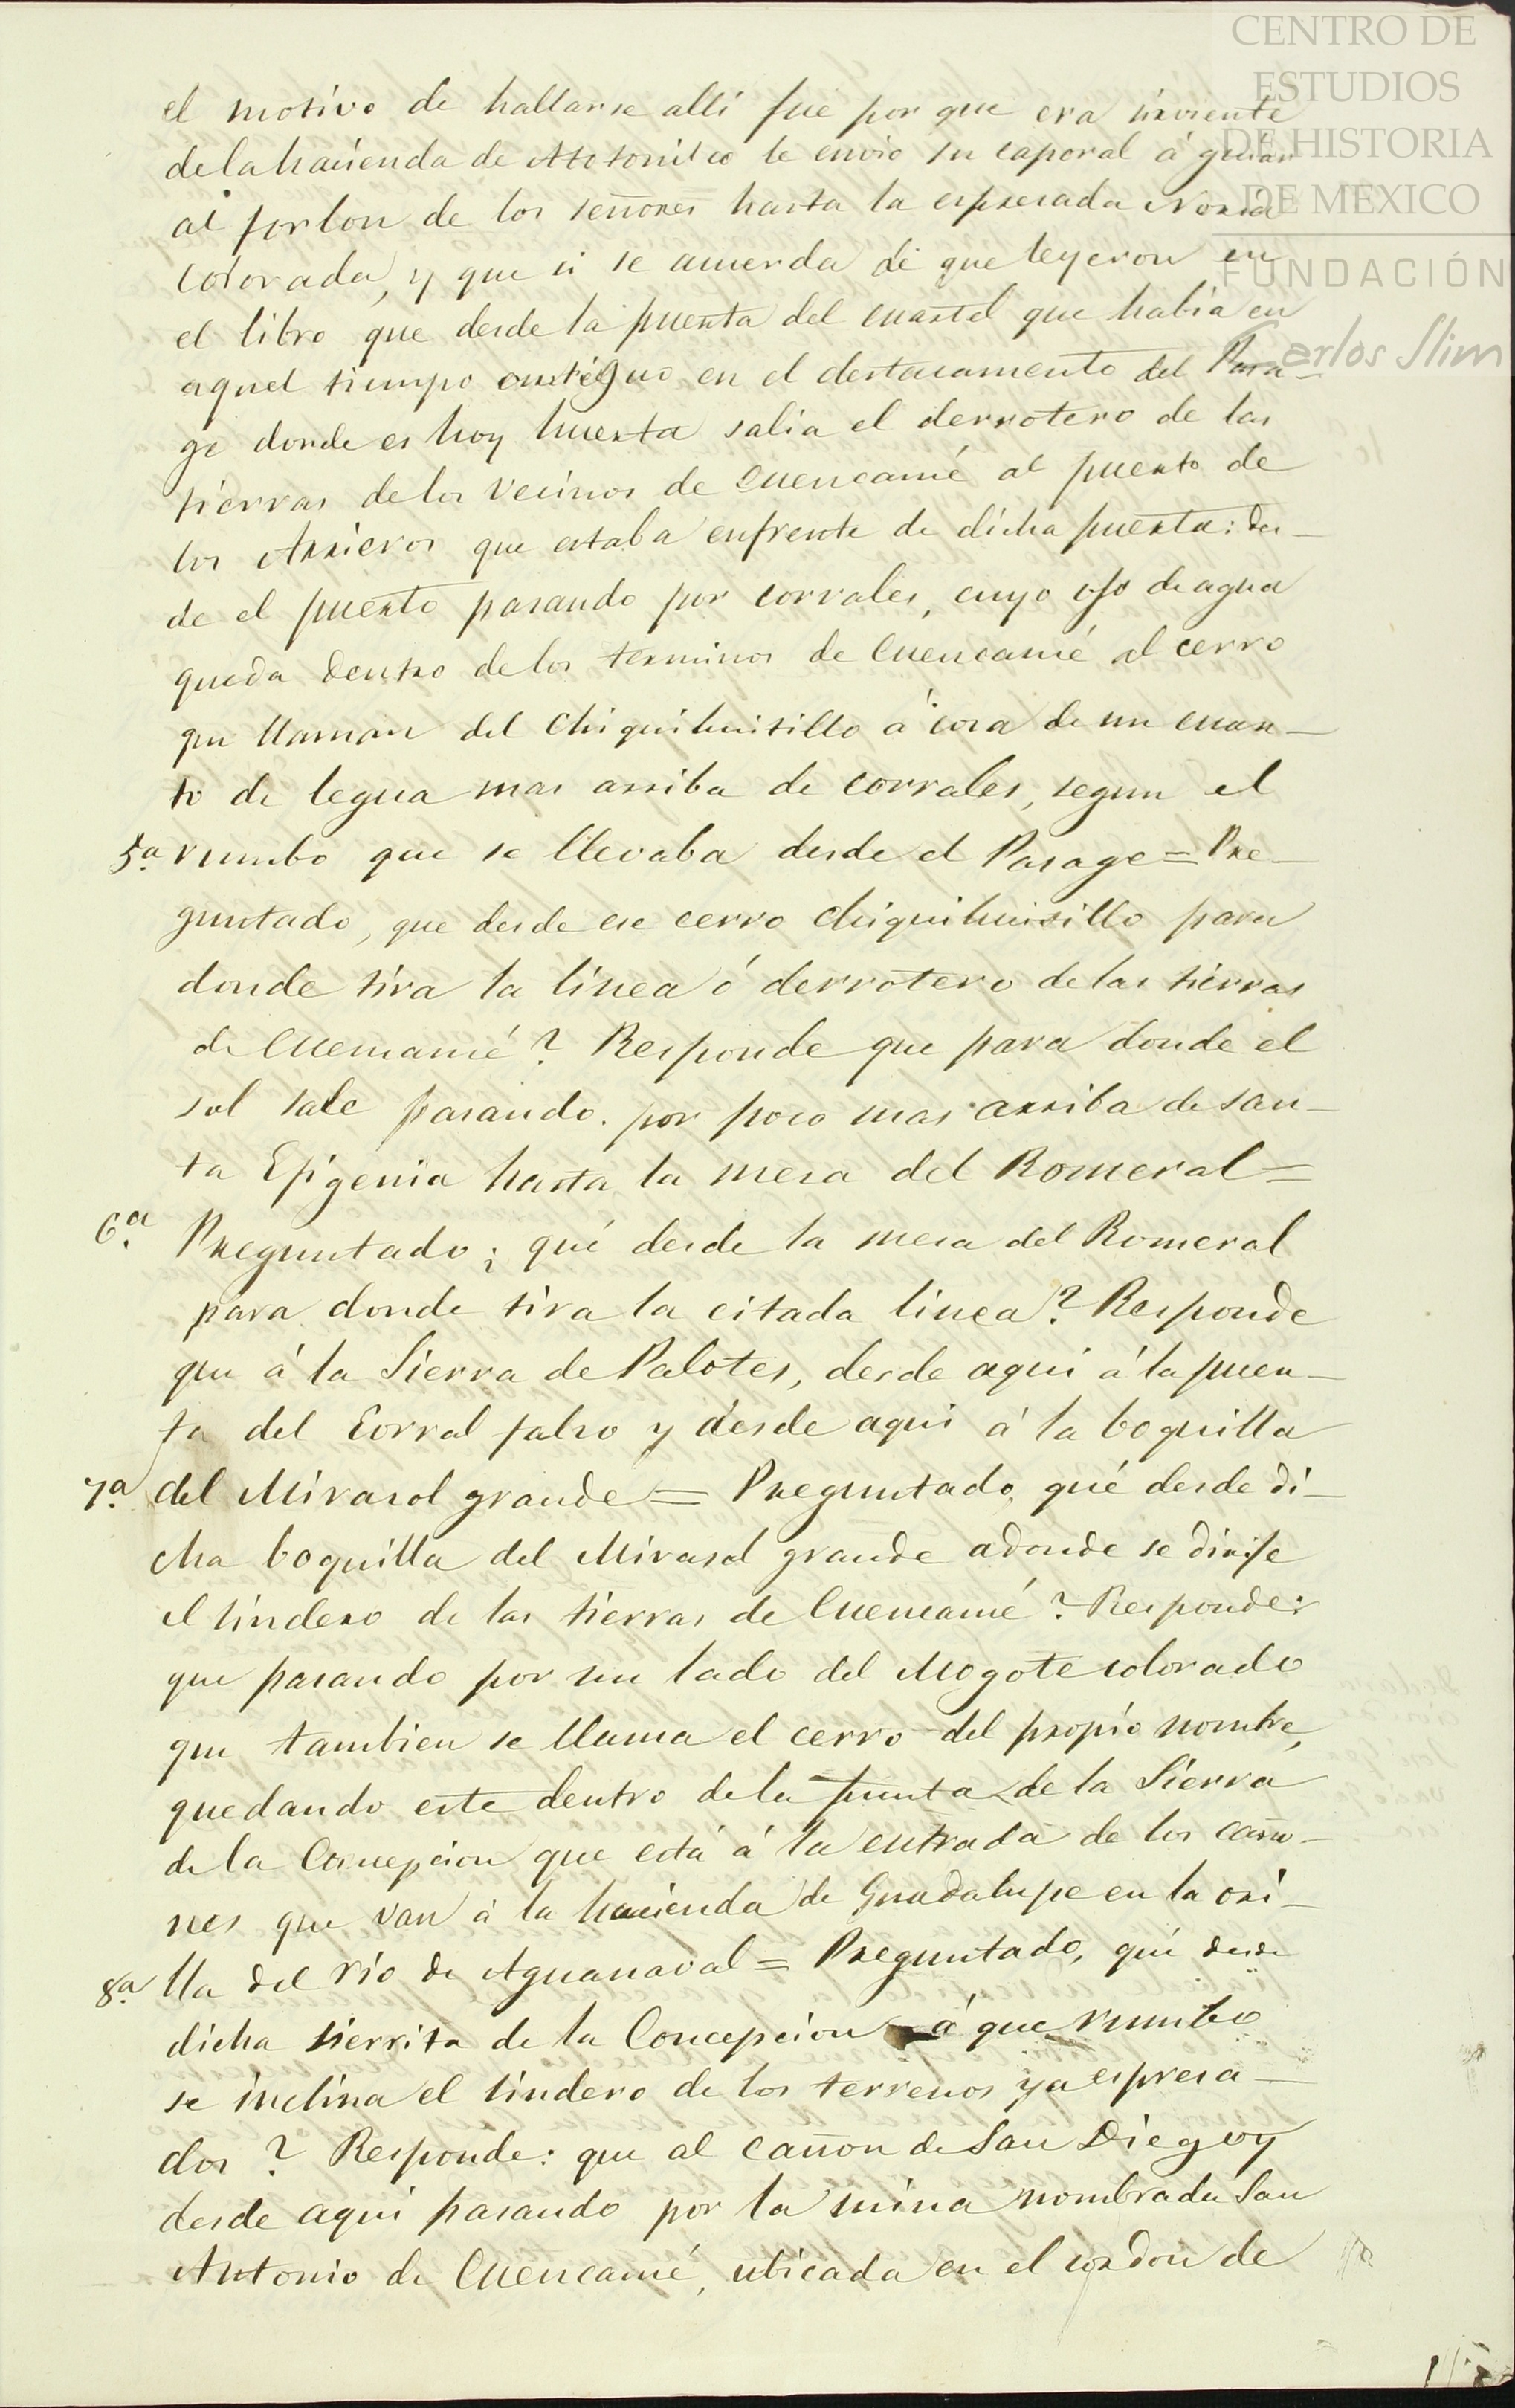 CENTRO DE
ESTUDIOS
DE HISTORIA
DE MEXICO
FUNDACIÓN
Carlos Slim
el motivo de hallarse alli fue por que era sirviente
de la hacienda de Atotonilco le envio su caporal á guiar
al forlon de los señores hasta la espresada Noria
colorada, y que si se acuerda de que leyeron en
el libro que desde la puerta del cuartel que habia en
aquel tiempo antiguo en el destacamento del Pasa-
ge donde es hoy huerta salia el derrotero de las
tierras de los vecinos de Cuencamé al puerto de
los Arrieros que estaba enfrente de dicha puerta: des-
de el puerto pasando por corrales, cuyo ojo de agua
queda dentro de los terminos de Cuencamé al cerro
que llaman del Chiquihuitillo á cosa de un cuar-
to de legua mas arriba de corrales, segun el
5.a rumbo que se llevaba desde el Pasage = Pre-
guntado, que desde ese cerro chiquihuitillo para
donde tira la linea ó derrotero de las tierras
de Cuencamé? Responde que para donde el
sol sale pasando por poco mas arriba de san-
ta Efigenia hasta la mesa del Romeral =
6.a Preguntado; qué desde la mesa del Romeral
para donde tira la citada linea? Responde
que á la Sierra de Palotes, desde aqui á la puer-
ta del Corral falso y desde aqui á la boquilla
7.a del Mirasol grande = Preguntado, qué desde di-
cha boquilla del Mirasol grande adonde se dirije
el lindero de las tierras de Cuencamé? Responde:
que pasando por un lado del Mogote colorado
que tambien se llama el cerro del propio nombre,
quedando este dentro de la punta de la Sierra
de la Concepcion que está á la entrada de los caño-
nes que van á la hacienda de Guadalupe en la ori-
8.a lla del rio de Aguanaval = Preguntado, qué desde
dicha sierrita de la Concepcion á que rumbo
se inclina el lindero de los terrenos ya espresa-
dos? Responde: que al cañon de San Diego y
desde aqui pasando por la mina nombrada San
Antonio de Cuencamé, ubicada en el cordon de